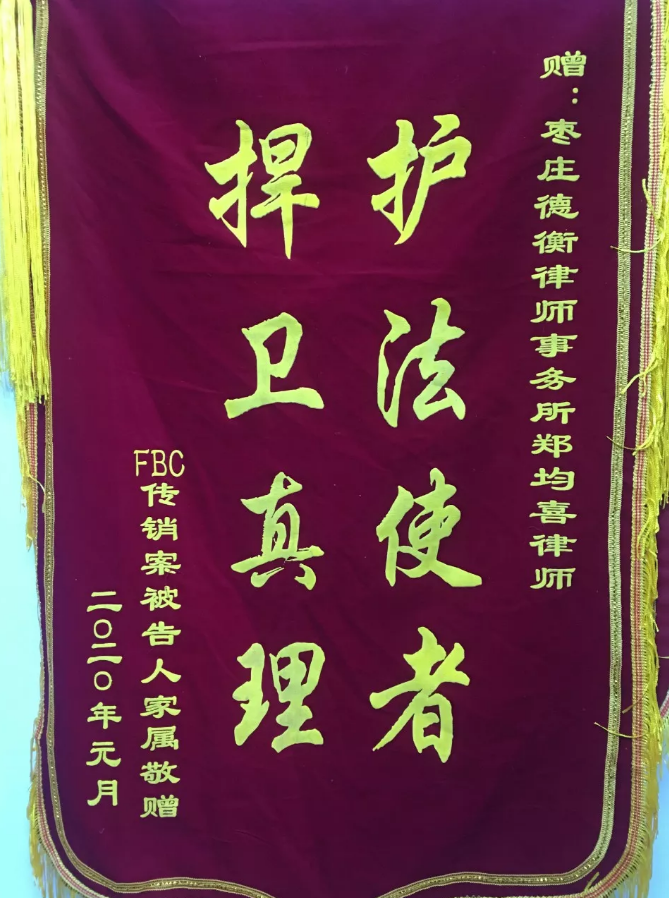 赠：枣庄德衡律师事务所郑均喜律师
护法使者
捍卫真理
FBC传销案被告人家属敬赠
二〇二〇年元月